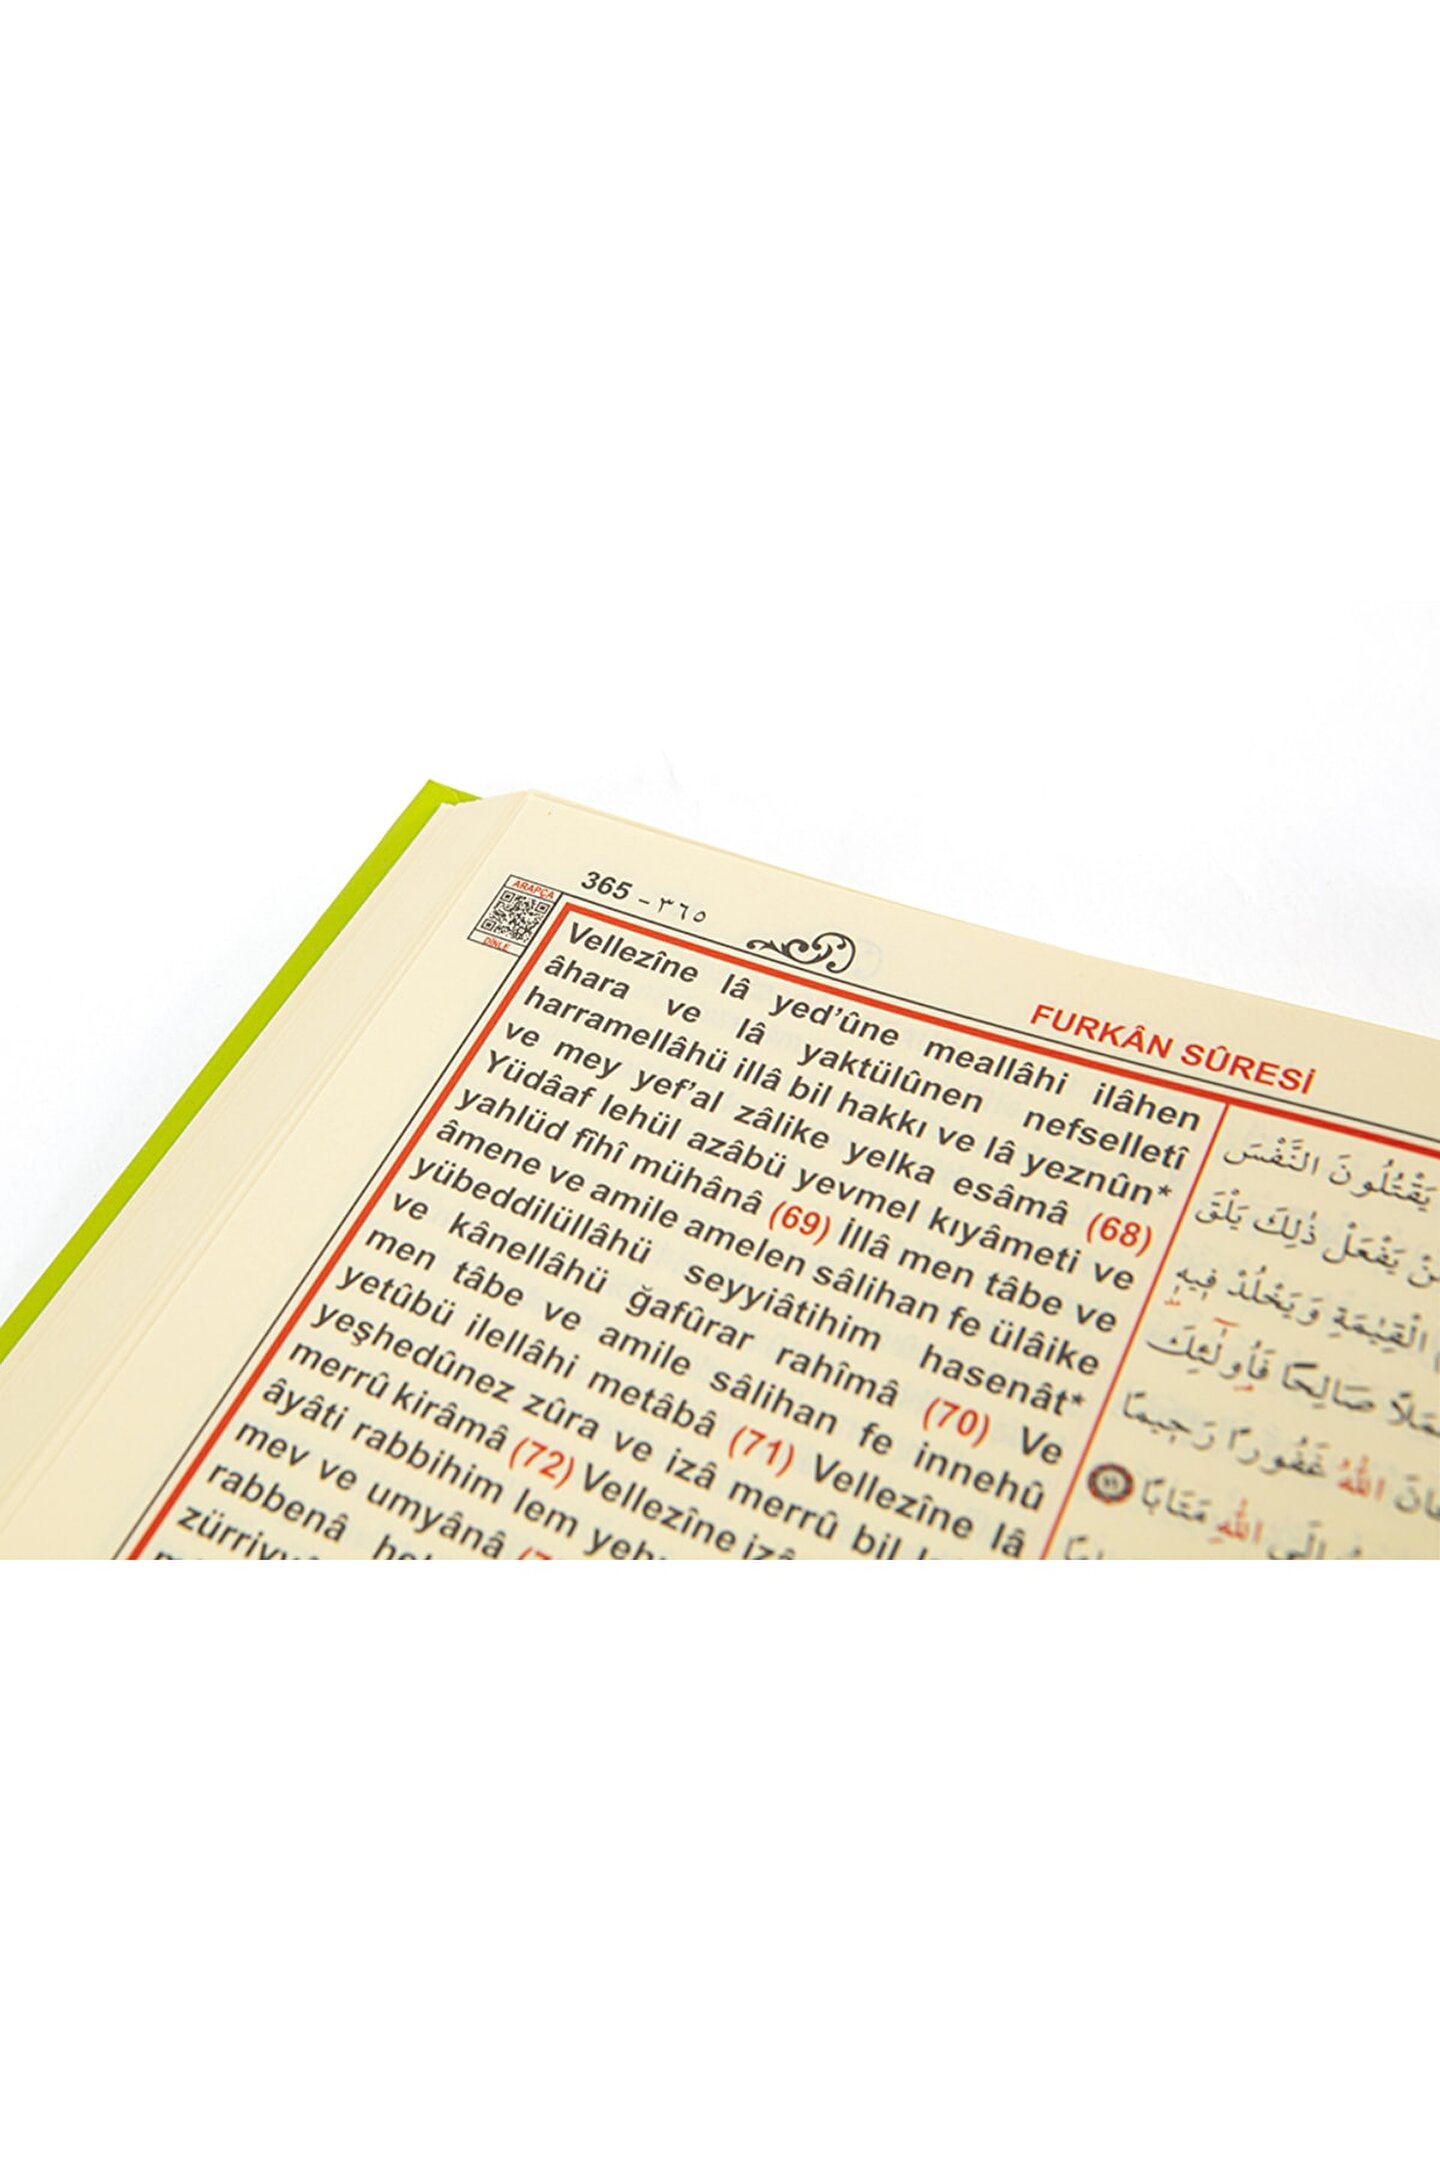 ARAPÇA
DİNLE
365 - ٣٦٥
FURKÂN SÛRESİ
Vellezîne lâ yed’ûne meallâhi ilâhen
âhara ve lâ yaktülûnen nefselletî
harramellâhü illâ bil hakkı ve lâ yeznûn*
ve mey yef’al zâlike yelka esâmâ (68)
Yüdâaf lehül azâbü yevmel kıyâmeti ve
yahlüd fîhî mühânâ (69) İllâ men tâbe ve
âmene ve amile amelen sâlihan fe ülâike
yübeddilüllâhü seyyiâtihim hasenât*
ve kânellâhü ğafûrar rahîmâ (70) Ve
men tâbe ve amile sâlihan fe innehû
yetûbü ilellâhi metâbâ (71) Vellezîne lâ
yeşhedûnez zûra ve izâ merrû bil
merrû kirâmâ (72) Vellezîne izâ
âyâti rabbihim lem
mev ve umyânâ
rabbenâ
يَقْتُلُونَ النَّفْسَ
يَفْعَلْ ذٰلِكَ يَلْقَ
الْقِيٰمَةِ وَيَخْلُدْ ف۪يهِ
صَالِحًا فَاُو۬لٰٓئِكَ
اللّٰهُ غَفُورًا رَح۪يمًا
اِلَى اللّٰهِ مَتَابًا